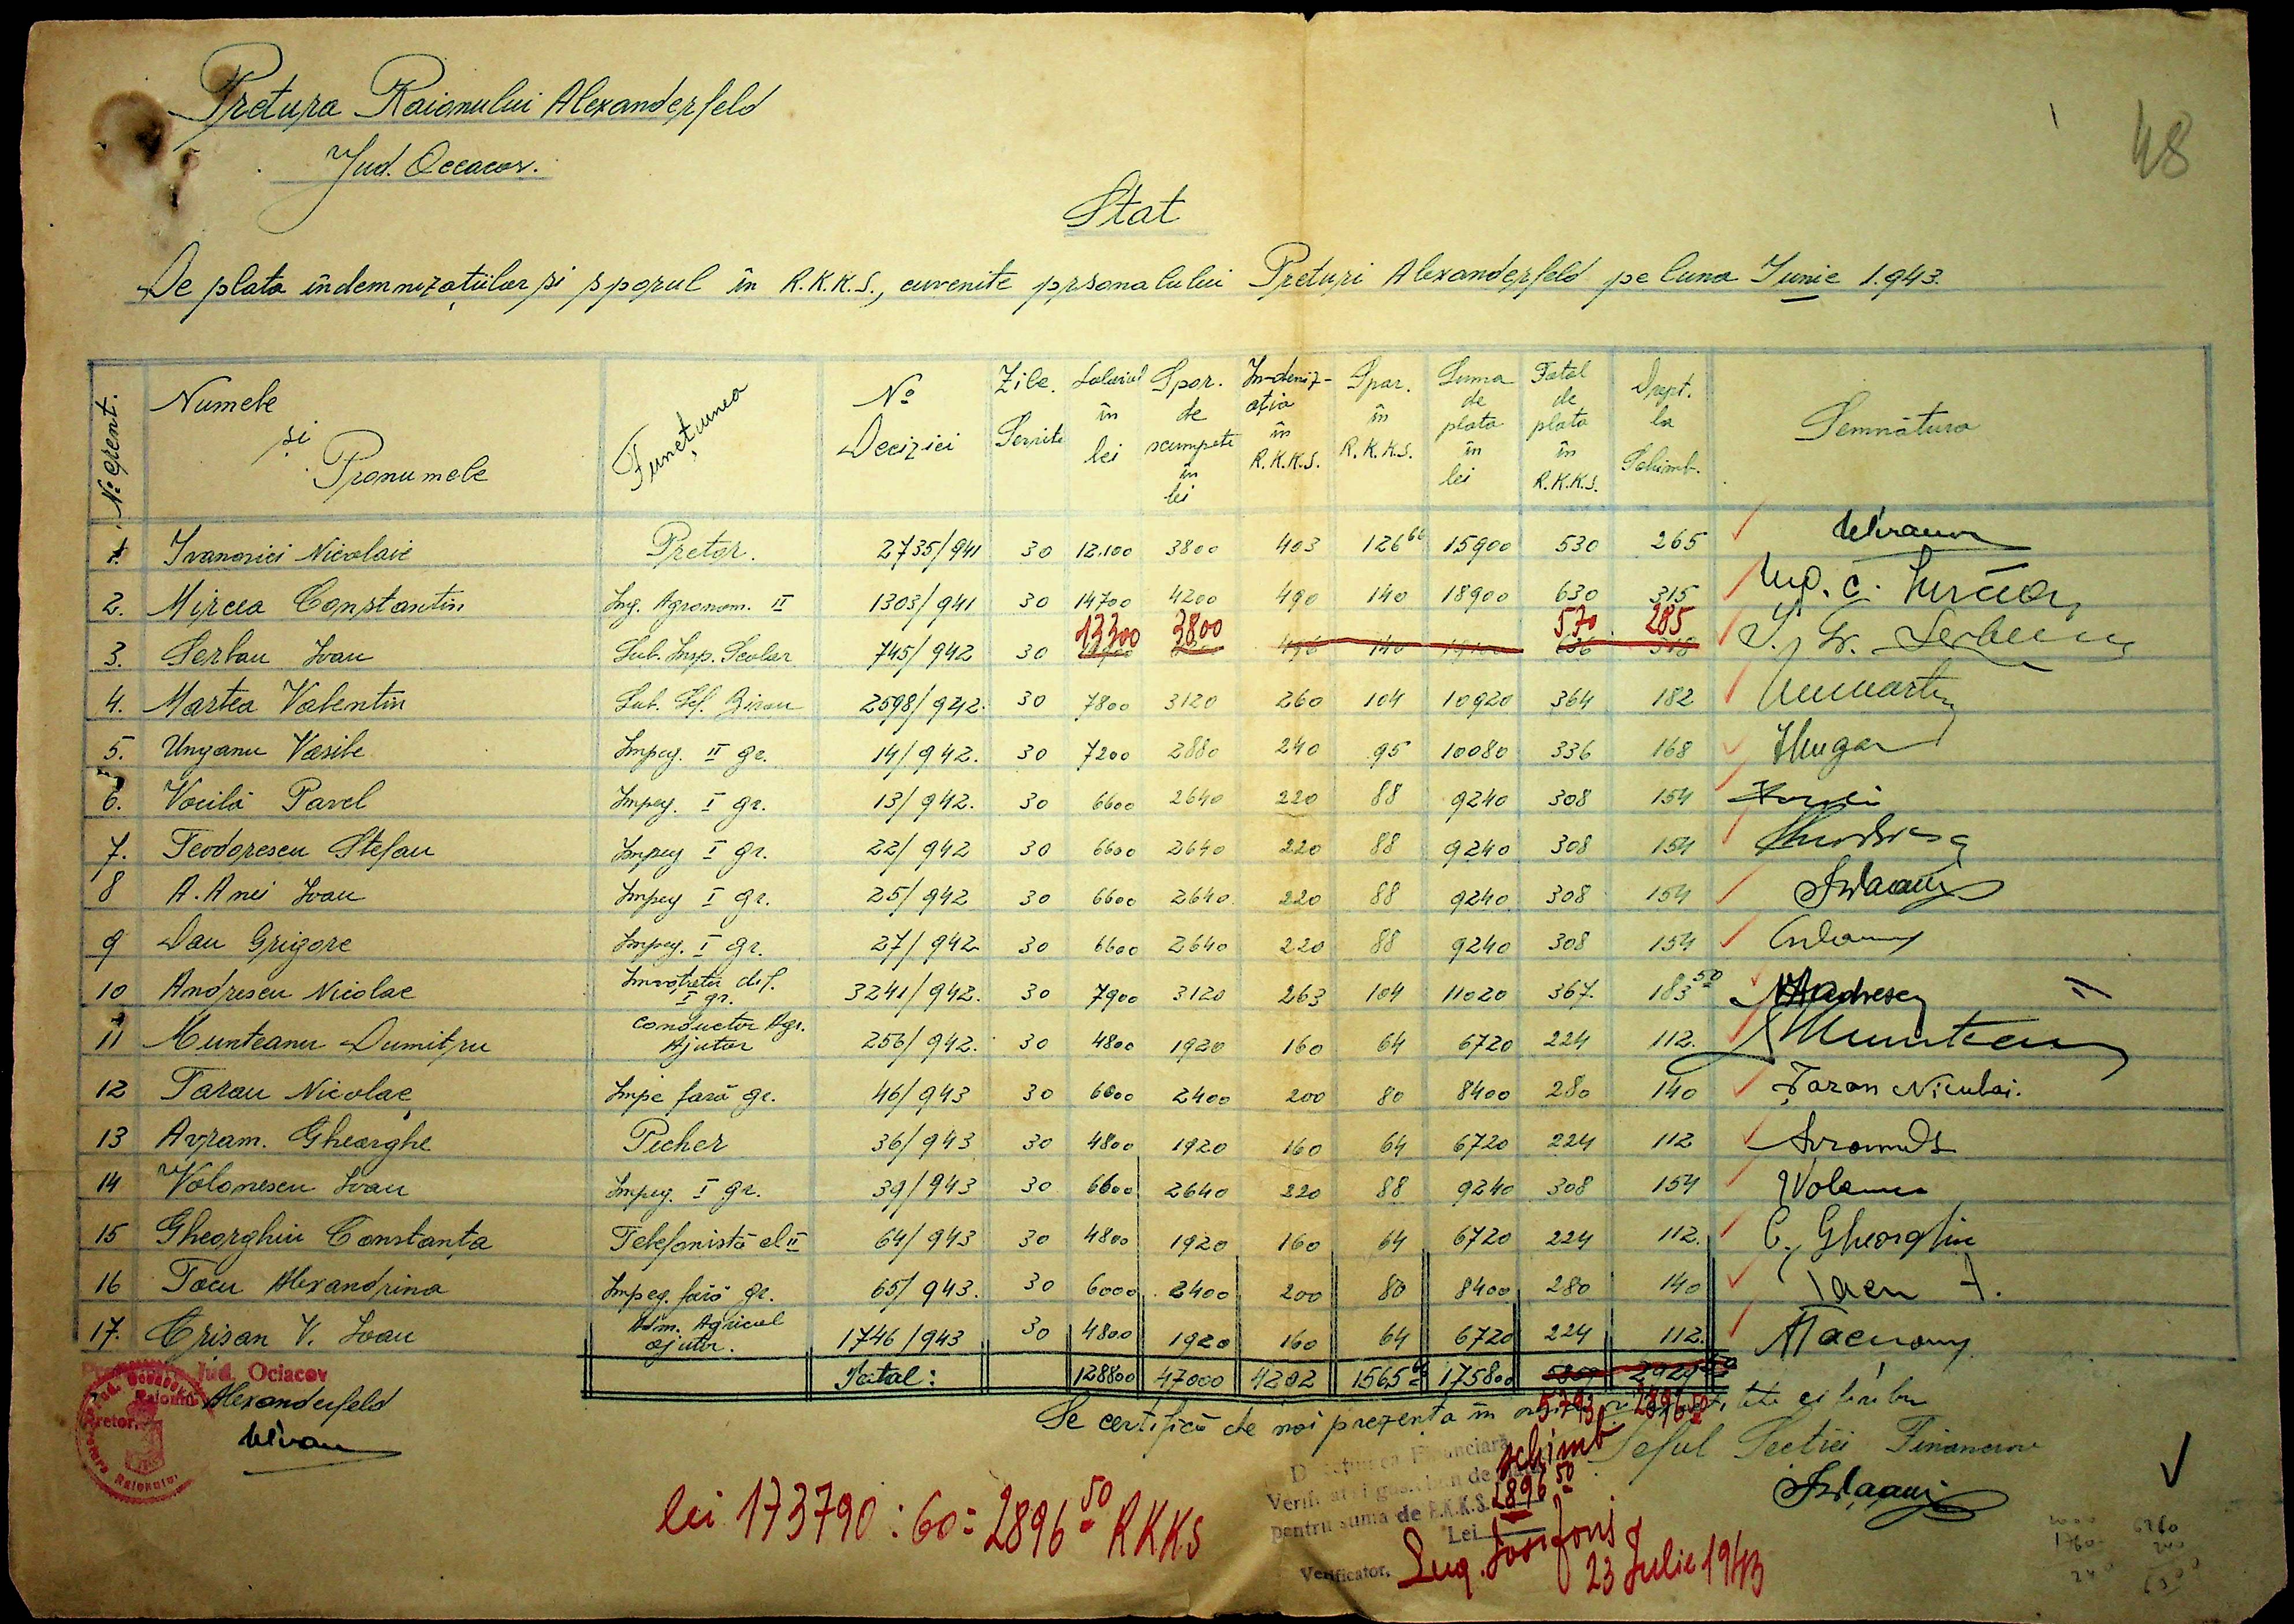 48
Pretura Raionului Alexanderfeld
Jud. Oceacov.
Stat
De plata îndemnizațiilor și sporul în R.K.K.S., cuvenite prsonalului Preturi Alexanderfeld pe luna Iunie 1.943.
No crent. Numele și Pronumele Funcțiunea No Deciziei Zile Servite Salariul în lei Spor. de scumpete în lei In-demiz-ația în R.K.K.S. Spor. în R.K.K.S. Suma de plata în lei Total de plata în R.K.K.S. Drept. la Schimb. Semnătura
1. Ivanovici Nicolaie Pretor. 2735/941 30 12.100 3800 403 126 66 15900 530 265
2. Mircea Constantin Ing. Agronom. II 1303/941 30 14700 4200 490 140 18900 630 315
13300 3800 570 285
3. Serban Ioan Sub. Insp. Scolar 745/942 30 496 140 19100 636 318
4. Martea Valentin Sub. Sef. Birou 2598/942. 30 7800 3120 260 104 10920 364 182
5. Unganu Vasile Impeg. II gr. 14/942. 30 7200 2880 240 95 10080 336 168
6. Vocilă Pavel Impeg. I gr. 13/942. 30 6600 2640 220 88 9240 308 154
7. Teodorescu Stefan Impeg I gr. 22/942 30 6600 2640 220 88 9240 308 154
8 A. Anei Ioan Impeg I gr. 25/942 30 6600 2640 220 88 9240 308 154
9 Dan Grigore Impeg. I gr. 27/942. 30 6600 2640 220 88 9240 308 154
10 Andrescu Nicolae def. I gr. 3241/942. 30 7900 3120 263 104 11020 367. 183 50
11 Munteanu Dumitru Conductor Agr. Ajutor 256/942. 30 4800 1920 160 64 6720 224 112.
12 Taran Nicolae Impe fară gr. 46/943 30 6000 2400 200 80 8400 280 140 Taran Niculai.
13 Avram. Gheorghe Picher 36/943 30 4800 1920 160 64 6720 224 112
14 Volonescu Ioan Impeg. I gr. 39/943 30 6600 2640 220 88 9240 308 154
15 Gheorghiu Constanța Telefonistă cl II 64/943 30 4800 1920 160 64 6720 224 112. C. Gheorghiu
16 Tacu Alexandrina Impeg. fără gr. 65/943. 30 6000 2400 200 80 8400 280 140 Tacu A.
17. Crisan V. Ioan Adm. Agricol ajutor. 1746/943 30 4800 1920 160 64 6720 224 112.
Total: 128800 47000 4202 1565 66 175800
5793 2896 50
Jud. Ociacov
Raionul Alexanderfeld
Pretor,
Se certifică de noi prezenta în
Seful Secției Financiare
Direcțiunea Financiară
schimb
pentru suma de R.K.K.S. 2896 50
Lei
Verificator,
23 Iulie 1943
lei 173790 : 60 = 2896 50 RKKS